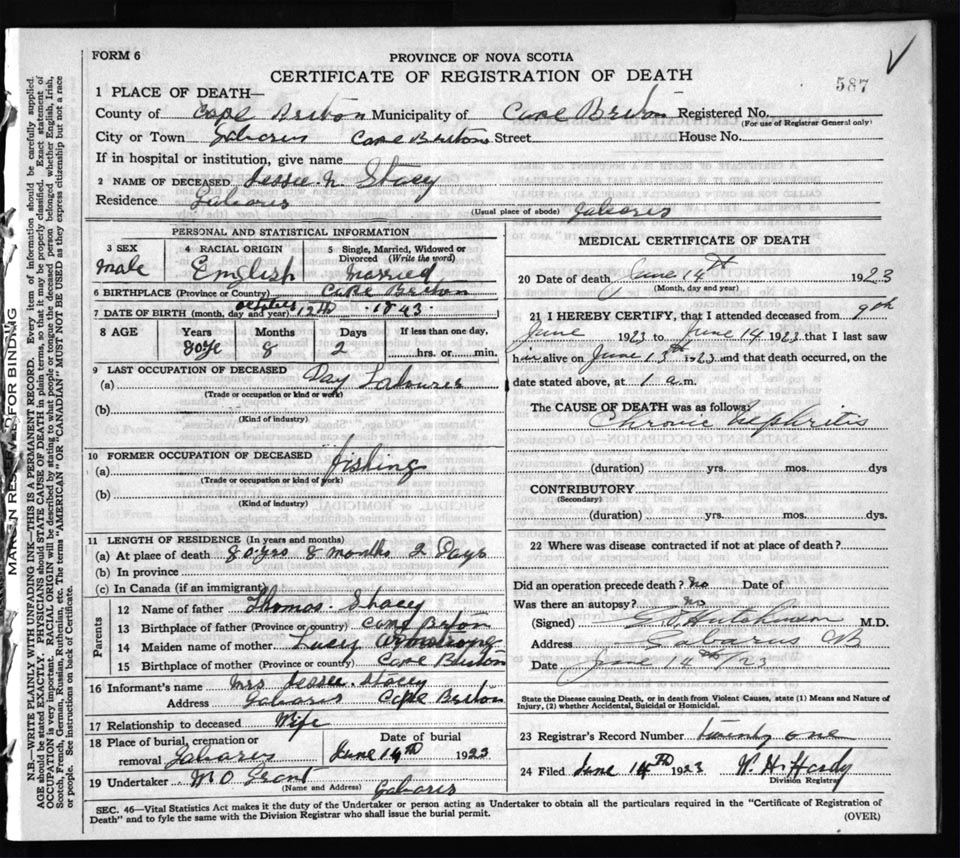 587
FORM 6
PROVINCE OF NOVA SCOTIA
CERTIFICATE OF REGISTRATION OF DEATH
1 PLACE OF DEATH—
County of Cape Breton Municipality of Cape Breton Registered No.
(For use of Registrar General only)
City or Town Gabarus Cape Breton Street House No.
If in hospital or institution, give name
2 NAME OF DECEASED Jessie N. Stacey
Residence Gabarus (Usual place of abode) Gabarus
PERSONAL AND STATISTICAL INFORMATION
3 SEX 4 RACIAL ORIGIN 5 Single, Married, Widowed or Divorced (Write the word)
Male English Married
6 BIRTHPLACE (Province or Country) Cape Breton
7 DATE OF BIRTH (month, day and year) October 12th 1843
8 AGE Years Months Days If less than one day,
80 8 2 hrs. or min.
9 LAST OCCUPATION OF DECEASED
(a) Day Labourer
(Trade or occupation or kind of work)
(b)
(Kind of industry)
10 FORMER OCCUPATION OF DECEASED
(a) Fishing
(Trade or occupation or kind of work)
(b)
(Kind of industry)
11 LENGTH OF RESIDENCE (In years and months)
(a) At place of death 80 yrs 8 months 2 Days
(b) In province
(c) In Canada (if an immigrant)
Parents
12 Name of father Thomas Stacey
13 Birthplace of father (Province or country) Cape Breton
14 Maiden name of mother Lucy Armstrong
15 Birthplace of mother (Province or country) Cape Breton
16 Informant's name Mrs Jessie Stacey
Address Gabarus Cape Breton
17 Relationship to deceased Wife
18 Place of burial, cremation or removal Gabarus Date of burial June 14th 1923
19 Undertaker M O Grant Gabarus
(Name and Address)
MEDICAL CERTIFICATE OF DEATH
20 Date of death June 14th 1923
(Month, day and year)
21 I HEREBY CERTIFY, that I attended deceased from 9th
June 1923 to June 14 1923 that I last saw
him alive on June 13th 1923 and that death occurred, on the
date stated above, at 1 a.m.
The CAUSE OF DEATH was as follows:
Chronic Nephritis
(duration) yrs. mos. dys
CONTRIBUTORY
(Secondary)
(duration) yrs. mos. dys
22 Where was disease contracted if not at place of death?
Did an operation precede death? No Date of
Was there an autopsy? No
(Signed) Hutchinson M.D.
Address Gabarus CB
Date June 14th/23
State the Disease causing Death, or in death from Violent Causes, state (1) Means and Nature of
Injury, (2) whether Accidental, Suicidal or Homicidal.
23 Registrar's Record Number twenty one
24 Filed June 14th 1923 W. H. Hardy
Division Registrar
SEC. 46—Vital Statistics Act makes it the duty of the Undertaker or person acting as Undertaker to obtain all the particulars required in the "Certificate of Registration of
Death" and to fyle the same with the Division Registrar who shall issue the burial permit.
(OVER)
MARGIN RESERVED FOR BINDING
N.B.—WRITE PLAINLY WITH UNFADING INK—THIS IS A PERMANENT RECORD. Every item of information should be carefully supplied.
AGE should be stated EXACTLY. PHYSICIANS should STATE CAUSE OF DEATH in plain terms, so that it may be properly classified. Exact statement of
OCCUPATION is very important. RACIAL ORIGIN will be described by stating to what people or tongue the deceased person belonged whether English, Irish,
Scotch, French, German, Russian, Ruthenian, etc. The terms "AMERICAN" or "CANADIAN" MUST NOT BE USED as they express citizenship but not a race
or people. See instructions on back of Certificate.